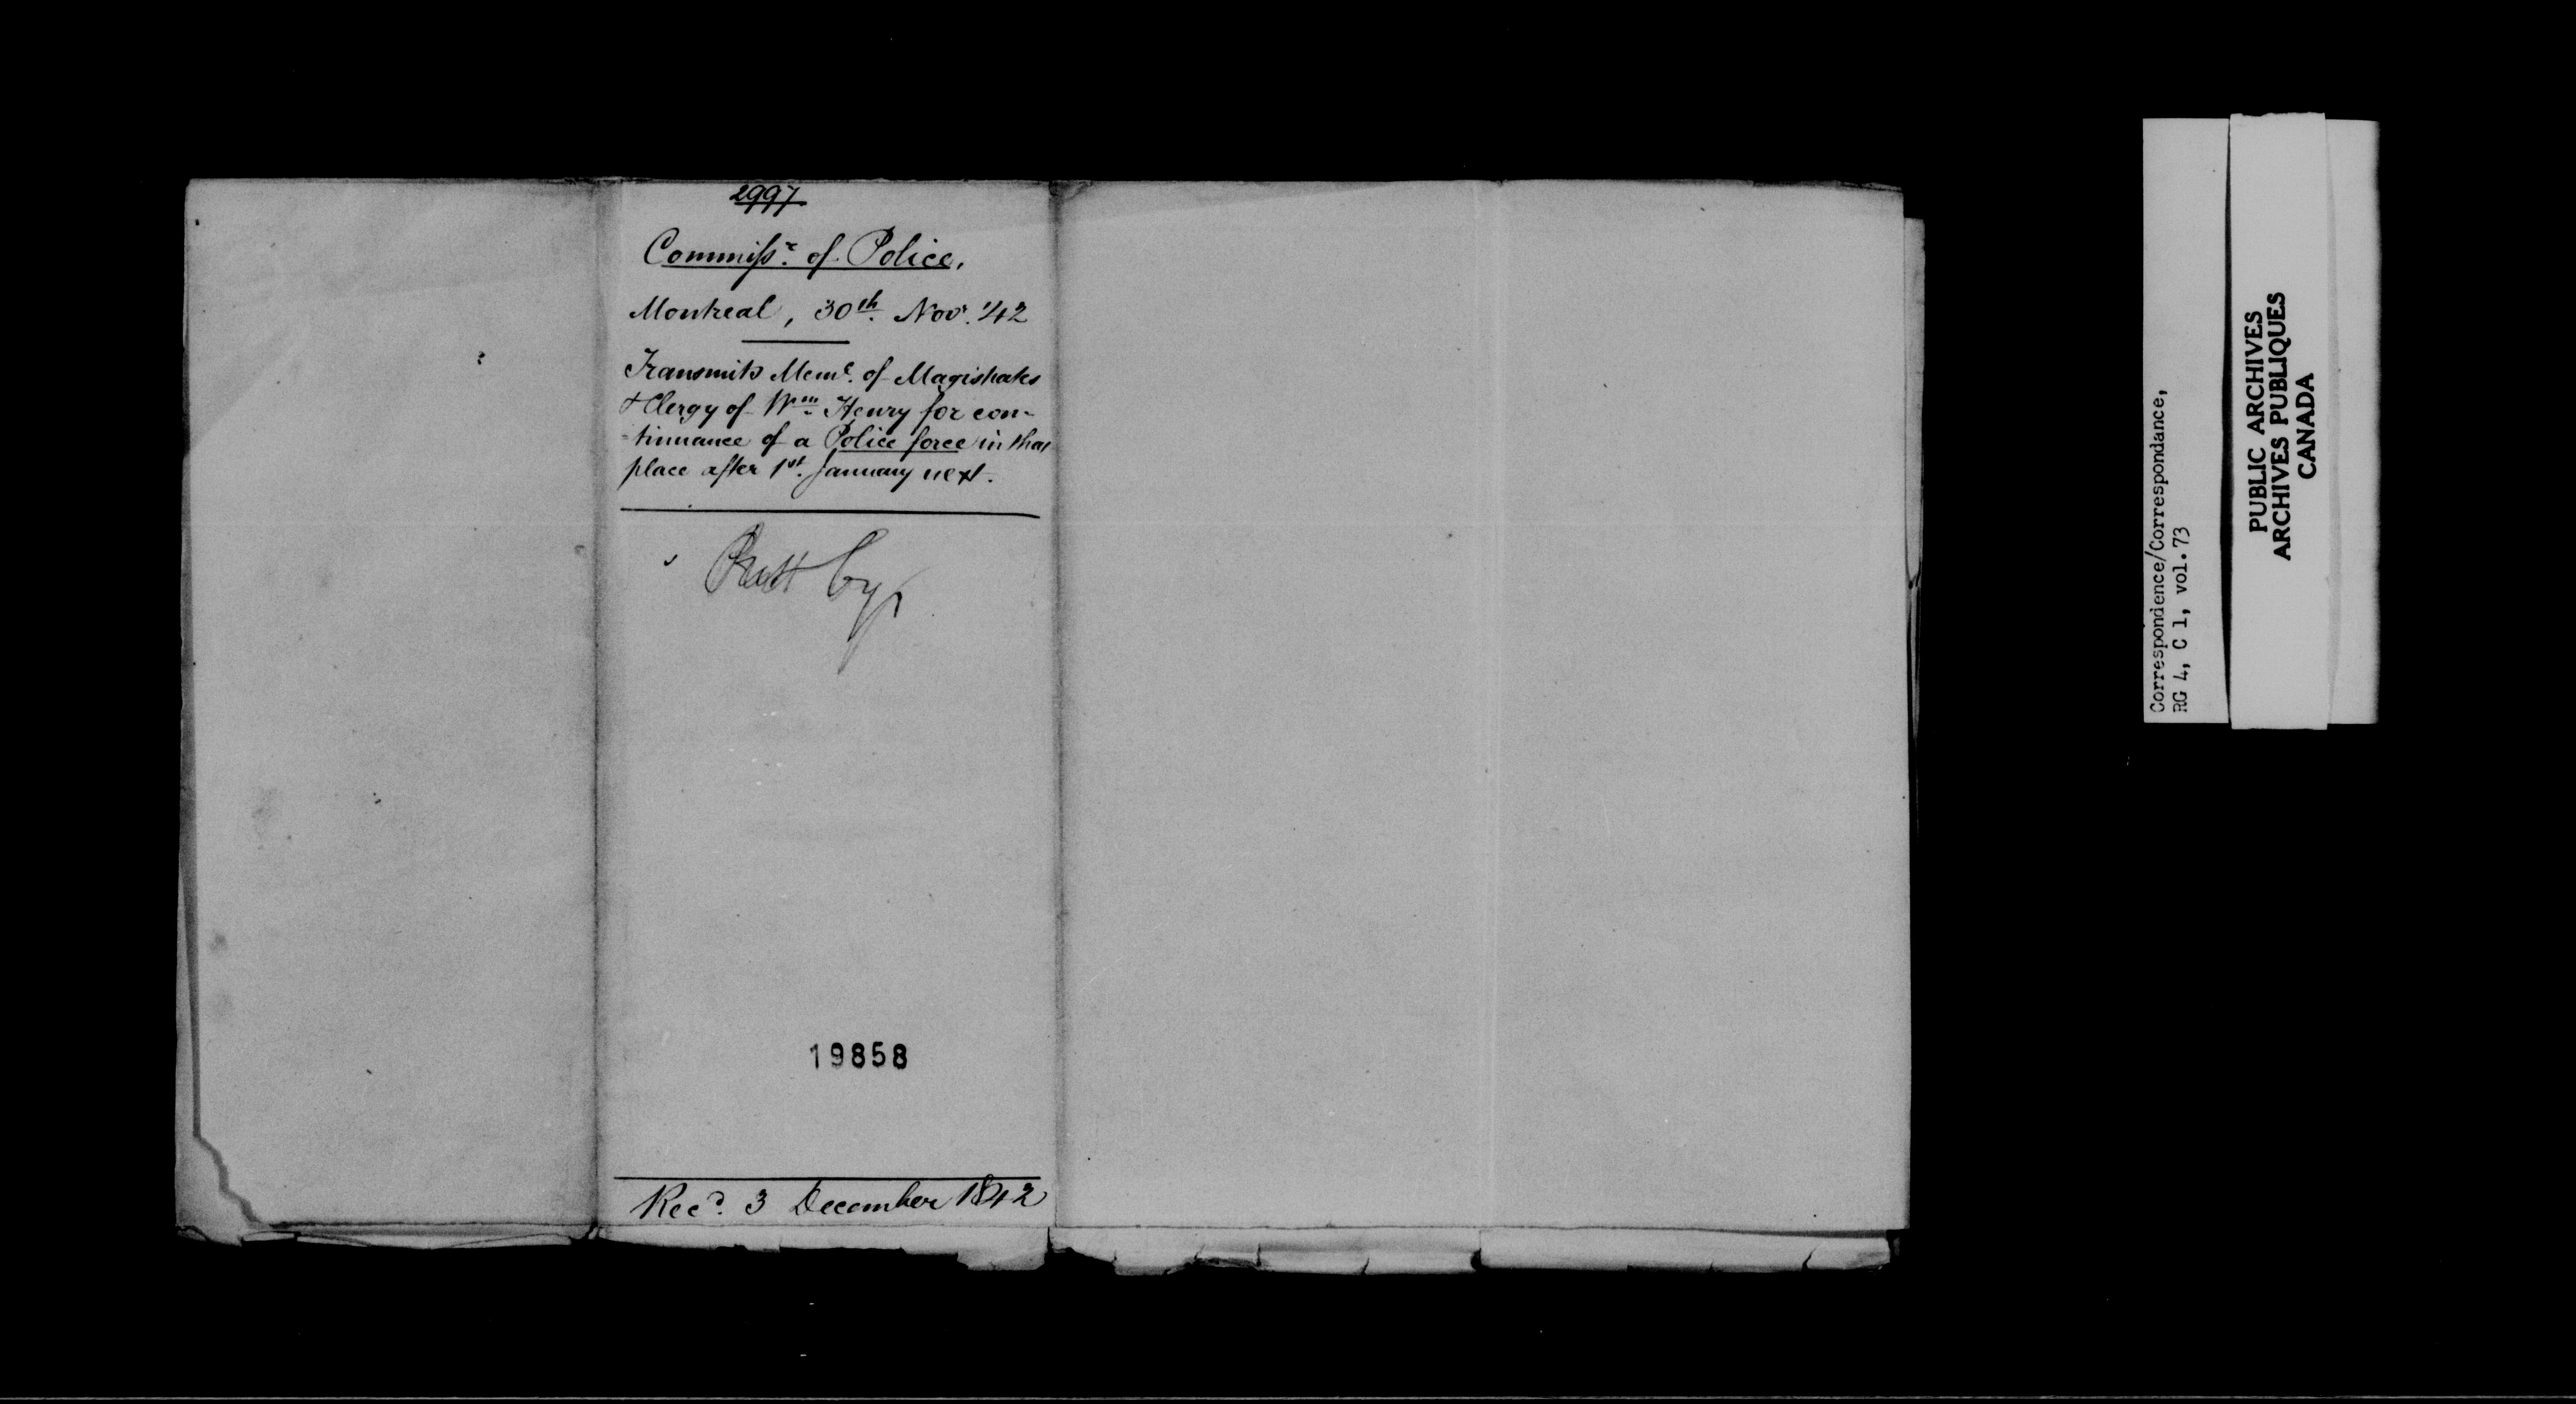 2997
Commissr. of Police,
Montreal, 30th. Novr. '42
Transmits Meml. of Magistrates
& Clergy of Wm. Henry for con-
-tinuance of a Police force in that
place after 1st. January next.
19858
Recd. 3 December 1842
Correspondence/Correspondance,
RG 4, C 1, vol.73
PUBLIC ARCHIVES
ARCHIVES PUBLIQUES
CANADA